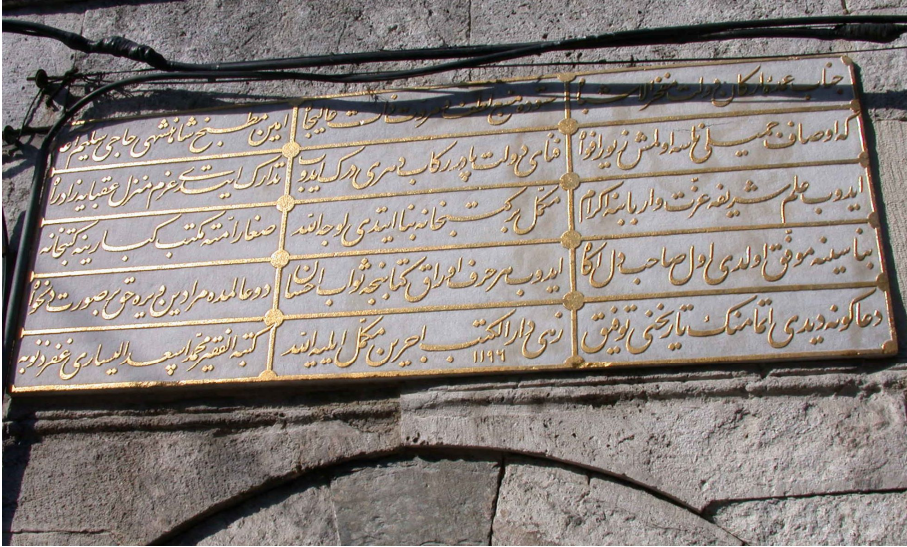 جناب عمدهٔ ارکان دولت مفخر الاشباه
عالیجاه
امین مطبخ شاهنشهی حاجی سلیم اغا
که اوصاف جمیلی نفسه اولمش زیور افواه
فنای دولت درک ایدوب
تدارک ایتدی عزم منزل عقبایه زاد راه
ایدوب علم شریفه عزت و اربابنه اکرام
مکمل بر کتبخانه بنا ایتدی لوجه الله
صغار امته مکتب کبارینه کتبخانه
بناسینه موفق اولدی اول صاحب دل آگاه
ایدوب هر حرف اوراق کتابنجه ثواب احسان
دو عالمده مرادین ویره حق بر صورت دلخواه
دعاگونه دیدی اتمامنک تاریخنی توفیق
زهی دار الکتب اجرین مکمل ایلیه الله ١١٩٦
کتبه الفقیر محمد اسعد الیساری غفر ذنوبه